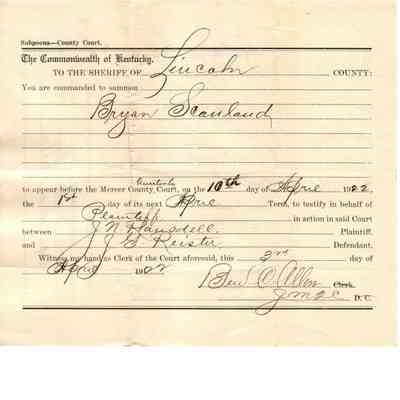 Subpoena—County Court.
The Commonwealth of Kentucky,
TO THE SHERIFF OF Lincoln COUNTY:
You are commanded to summon
Bryan Scanland
to appear before the Mercer County Court, on the 10th day of April 1922
the 1st day of its next April Term, to testify in behalf of
Plaintiff in action in said Court
between J N Plaintiff,
and J. E Reister Defendant.
Witness my hand as Clerk of the Court aforesaid, this 3rd day of
April 1922
Ben C. Allen Clerk
D. C.